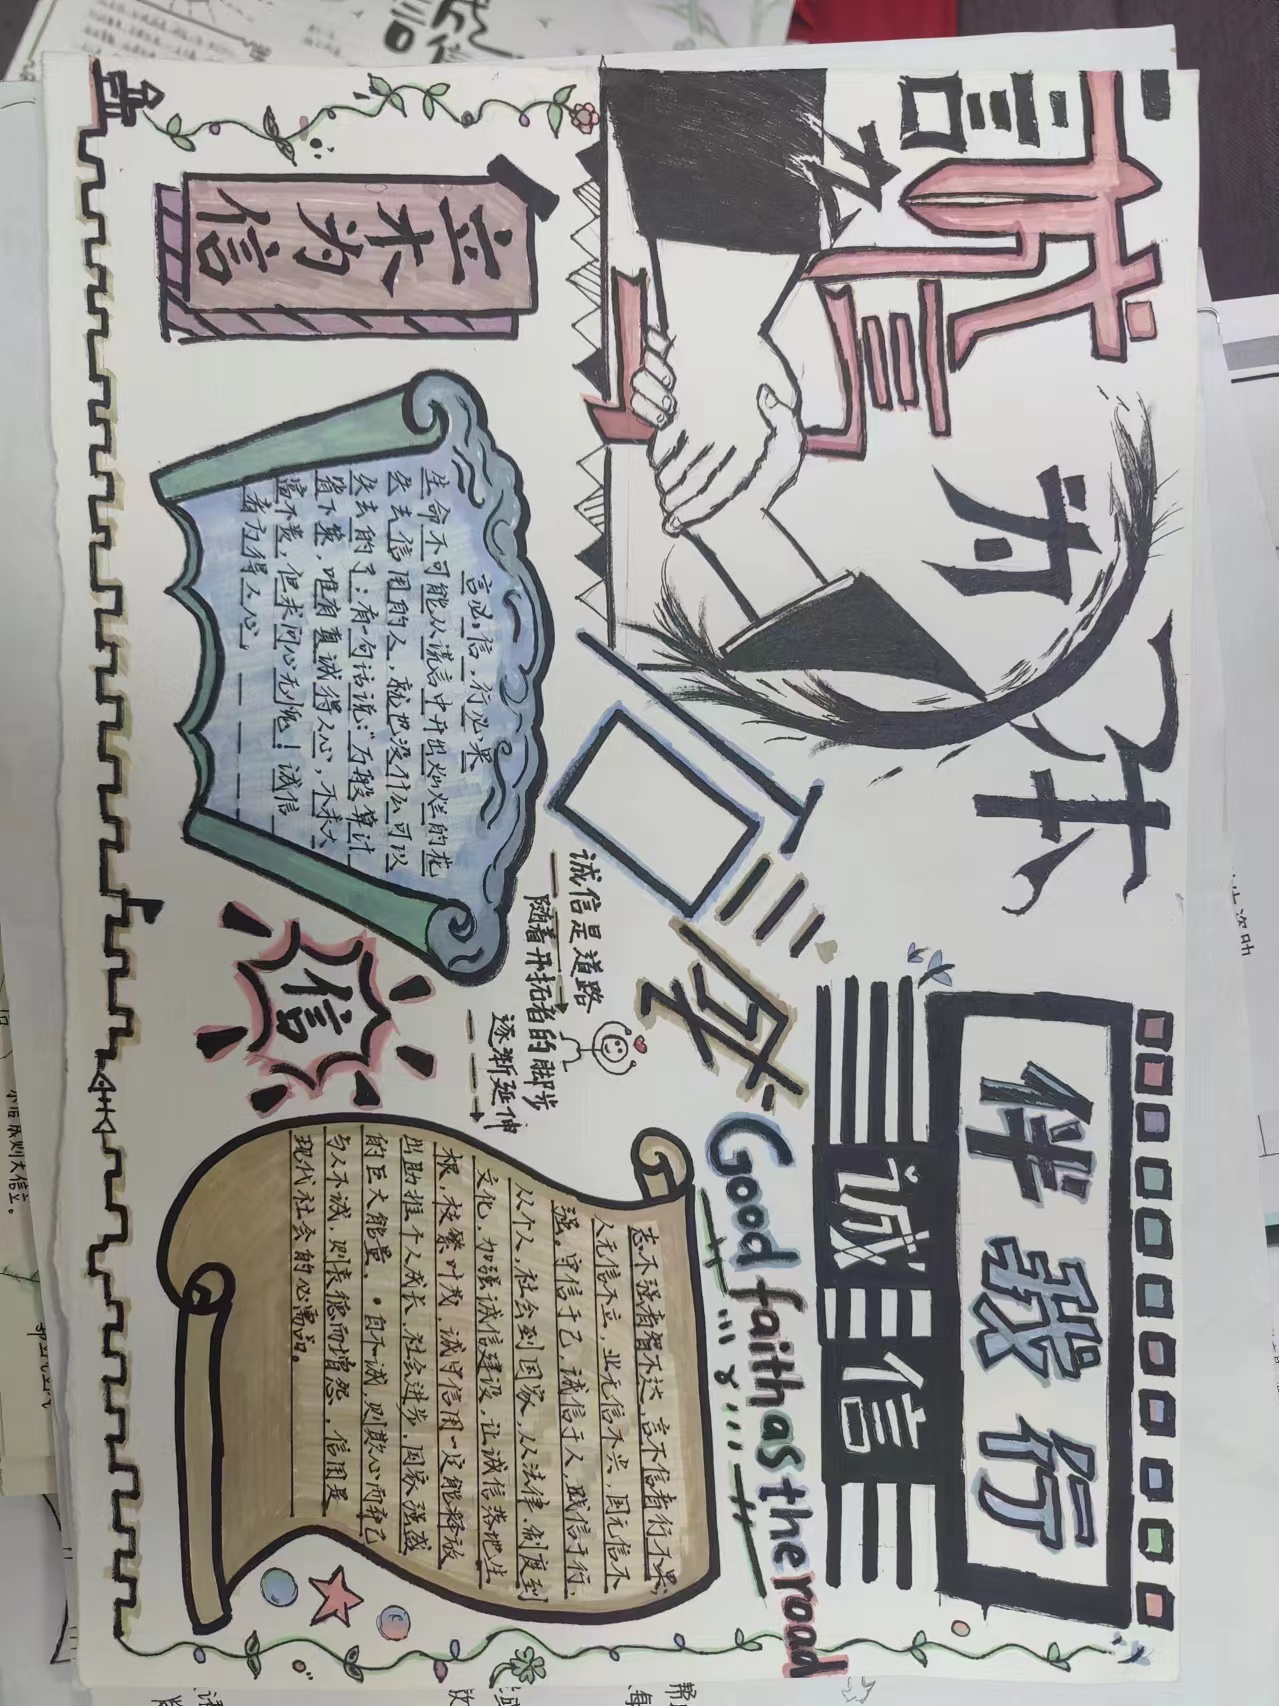 以誠信
为本
立木为信
言必信，行必果
生命不可能从谎言中开出灿烂的花
失去信用的人，就也没什么可以
失去的了；有一句话说：“万般算计
皆下策，唯有真诚得人心，不求大
富不贵，但求问心无愧！诚信
者方得人心
信
诚信是道路
随着开拓者的脚步
逐渐延伸
伴我行
诚信
Good faith as the road
志不强者智不达，言不信者行不果，
人无信不立，业无信不兴，国无信不
强。守信于己，诚信于人，赋信于行，
从个人，社会到国家，从法律、制度到
文化，加强诚信建设，让诚信落地生
根，枝繁叶茂，诚守信用一定能释放
出助推个人成长、社会进步，国家强盛
的巨大能量。·自不诚，则欺心而弃己
与人不诚，则丧德而增怨，信用是
现代社会的必需品。